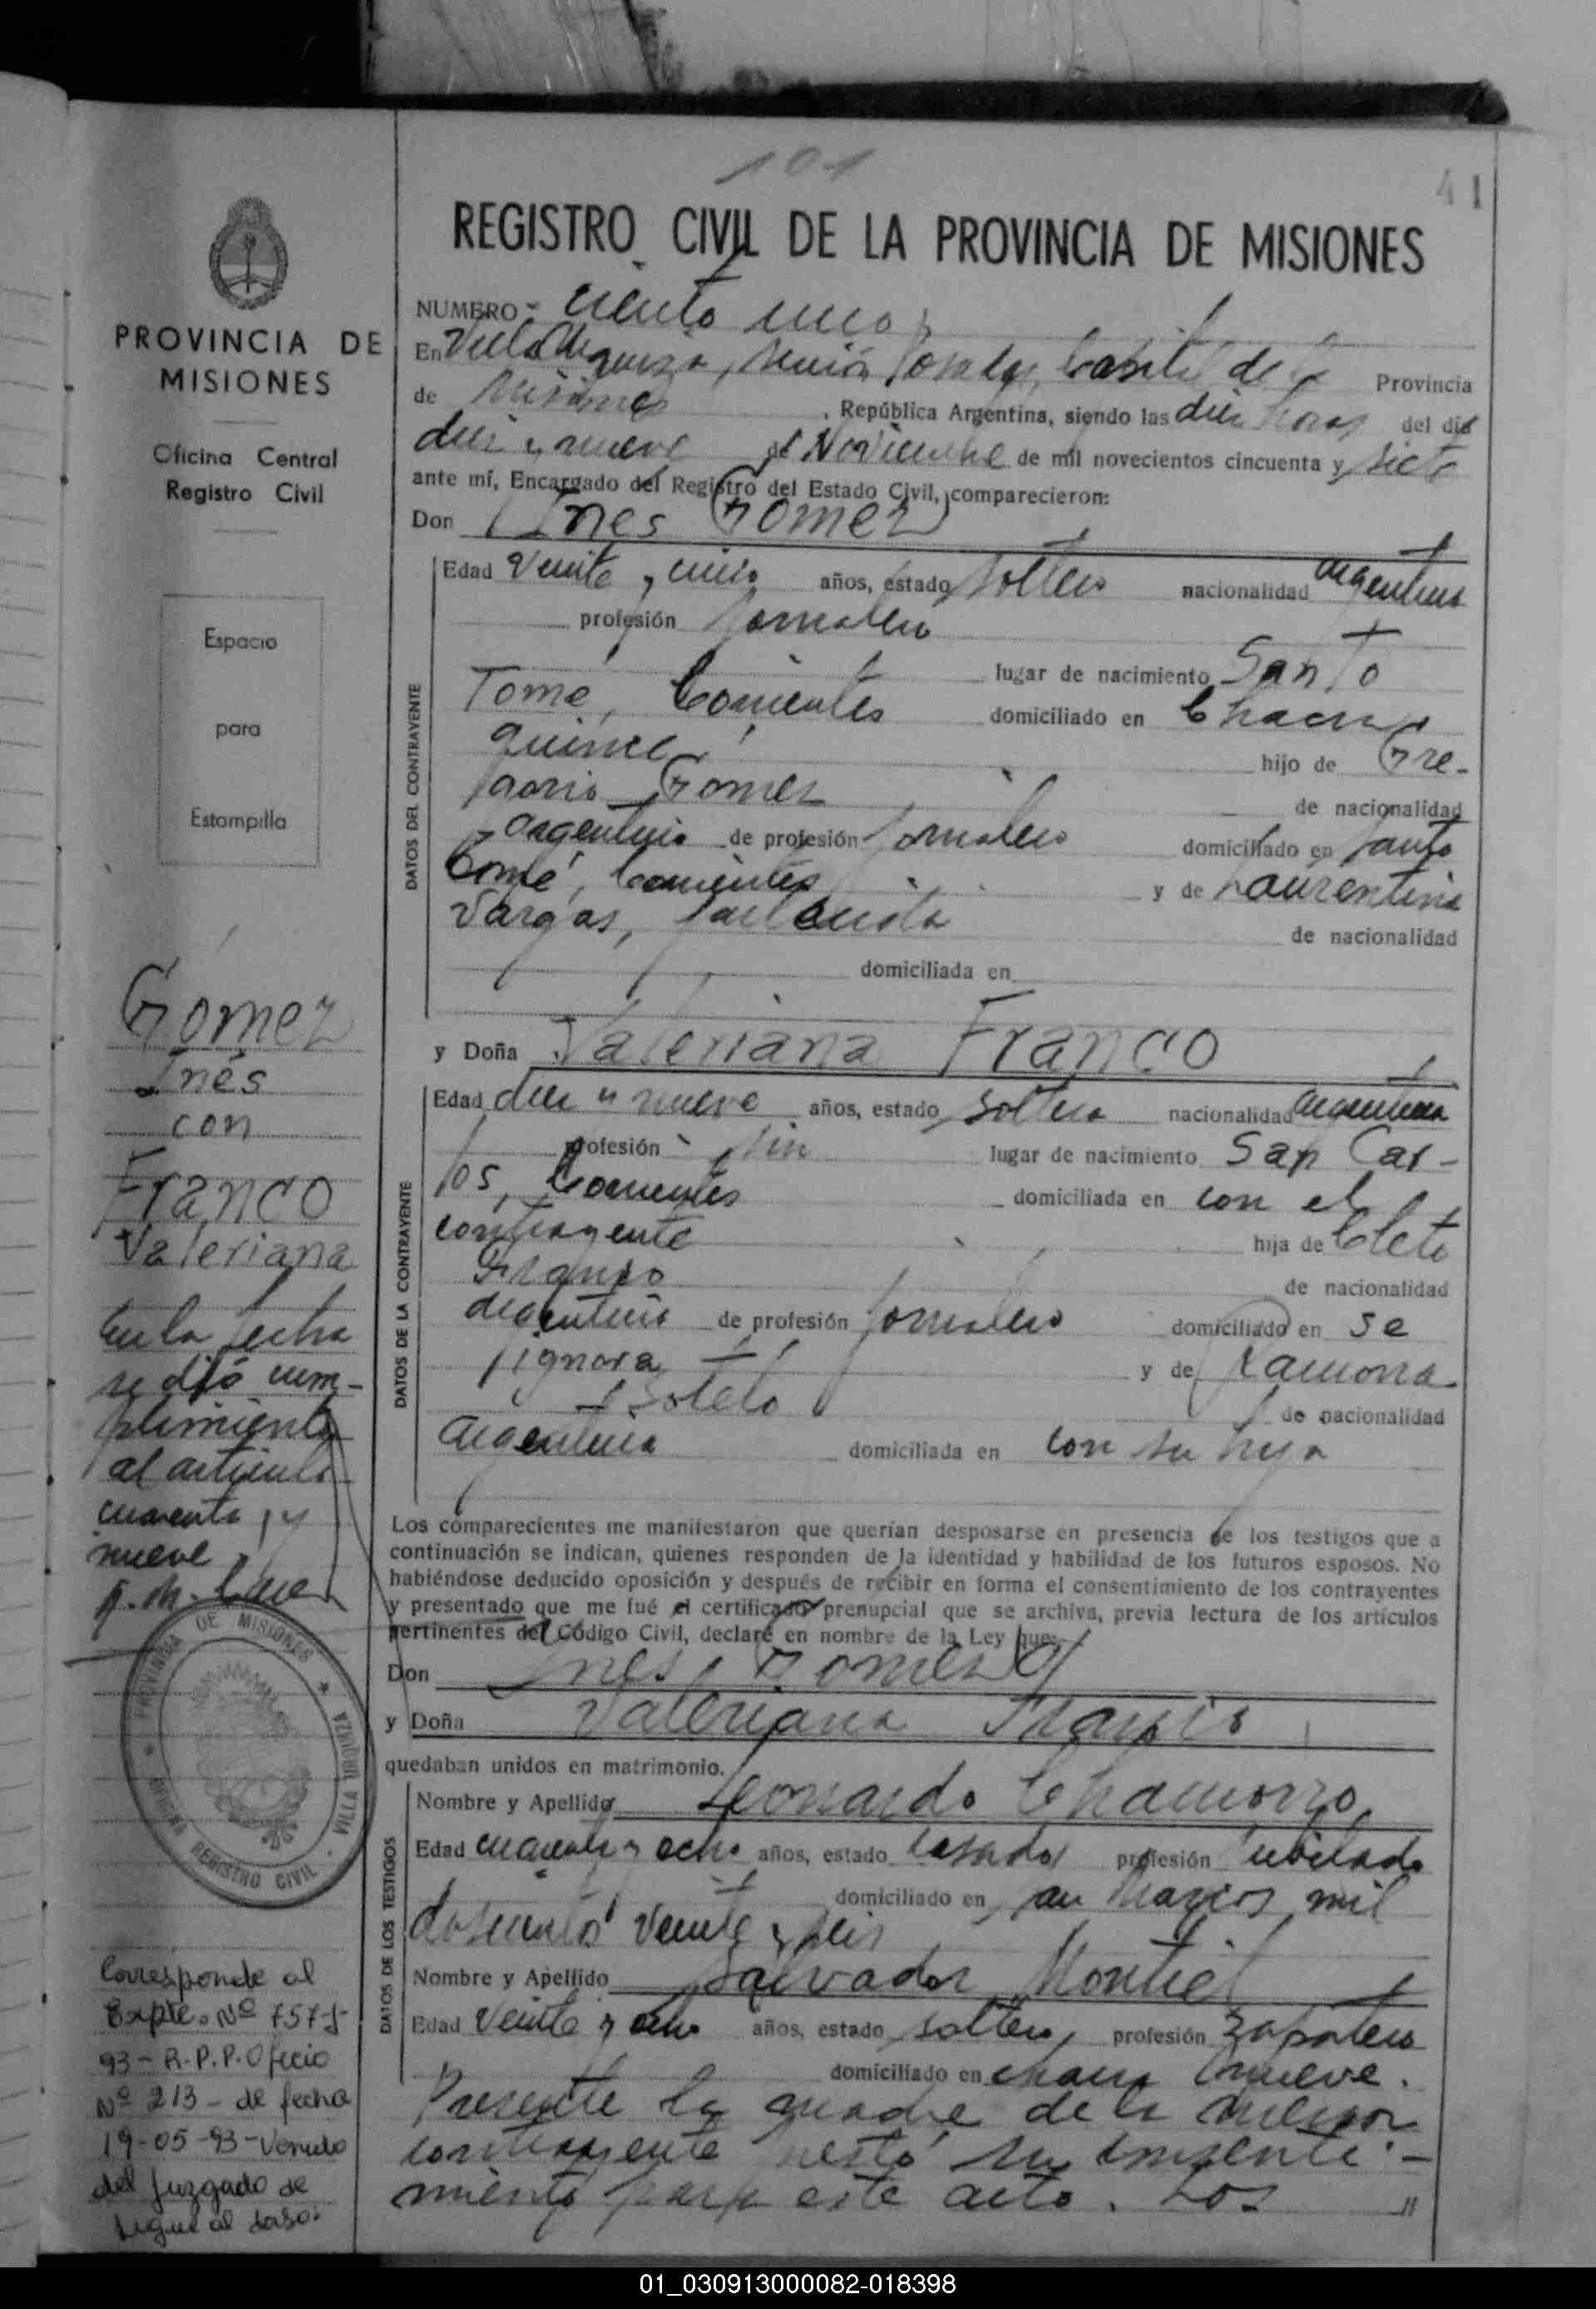 101
41
REGISTRO CIVIL DE LA PROVINCIA DE MISIONES
PROVINCIA DE
MISIONES
Oficina Central
Registro Civil
Espacio
para
Estampilla
NUMERO ciento uno
En Villa Urquiza, Capital de la Provincia
de Misiones, República Argentina, siendo las diez horas del día
diez y nueve de Noviembre de mil novecientos cincuenta y siete
ante mí, Encargado del Registro del Estado Civil, comparecieron:
Don Inés Gomez
DATOS DEL CONTRAYENTE
Edad veinte y cinco años, estado soltero nacionalidad argentina
profesión jornalero
lugar de nacimiento Santo
Tomé, Corrientes domiciliado en Chacra
quince hijo de Gre-
gorio Gomez de nacionalidad
argentino de profesión jornalero domiciliado en Santo
Tomé, Corrientes y de Laurentina
Vargas, fallecida de nacionalidad
domiciliada en
y Doña Valeriana Franco
DATOS DE LA CONTRAYENTE
Edad diez y nueve años, estado soltera nacionalidad argentina
profesión sin lugar de nacimiento San Car-
los, Corrientes domiciliada en con el
contrayente hija de Cleto
Franco de nacionalidad
argentino de profesión jornalero domiciliado en se
ignora y de Ramona
Sotelo de nacionalidad
argentina domiciliada en con su hija
Los comparecientes me manifestaron que querían desposarse en presencia de los testigos que a
continuación se indican, quienes responden de la identidad y habilidad de los futuros esposos. No
habiéndose deducido oposición y después de recibir en forma el consentimiento de los contrayentes
y presentado que me fué el certificado prenupcial que se archiva, previa lectura de los artículos
pertinentes del Código Civil, declaré en nombre de la Ley que:
Don Inés Gomez
y Doña Valeriana Franco
quedaban unidos en matrimonio.
DATOS DE LOS TESTIGOS
Nombre y Apellido Leonardo Chamorro
Edad cuarenta y ocho años, estado casado profesión jubilado
domiciliado en mil
doscientos veinte y seis
Nombre y Apellido Salvador Montiel
Edad veinte y ocho años, estado soltero, profesión zapatero
domiciliado en chacra nueve.
Presente la madre de la menor
contrayente prestó su consenti-
miento para este acto. Los
Gómez
Inés
con
Franco
Valeriana
En la fecha
se dió cum-
plimiento
al artículo
cuarenta y
nueve
PROVINCIA DE MISIONES
VILLA URQUIZA
OFICINA REGISTRO CIVIL
Corresponde al
Expte. Nº 7575-
93-R.P.P. Oficio
Nº 213 - de fecha
19-05-93-Venido
del Juzgado de
Sigue al dorso:
01_030913000082-018398